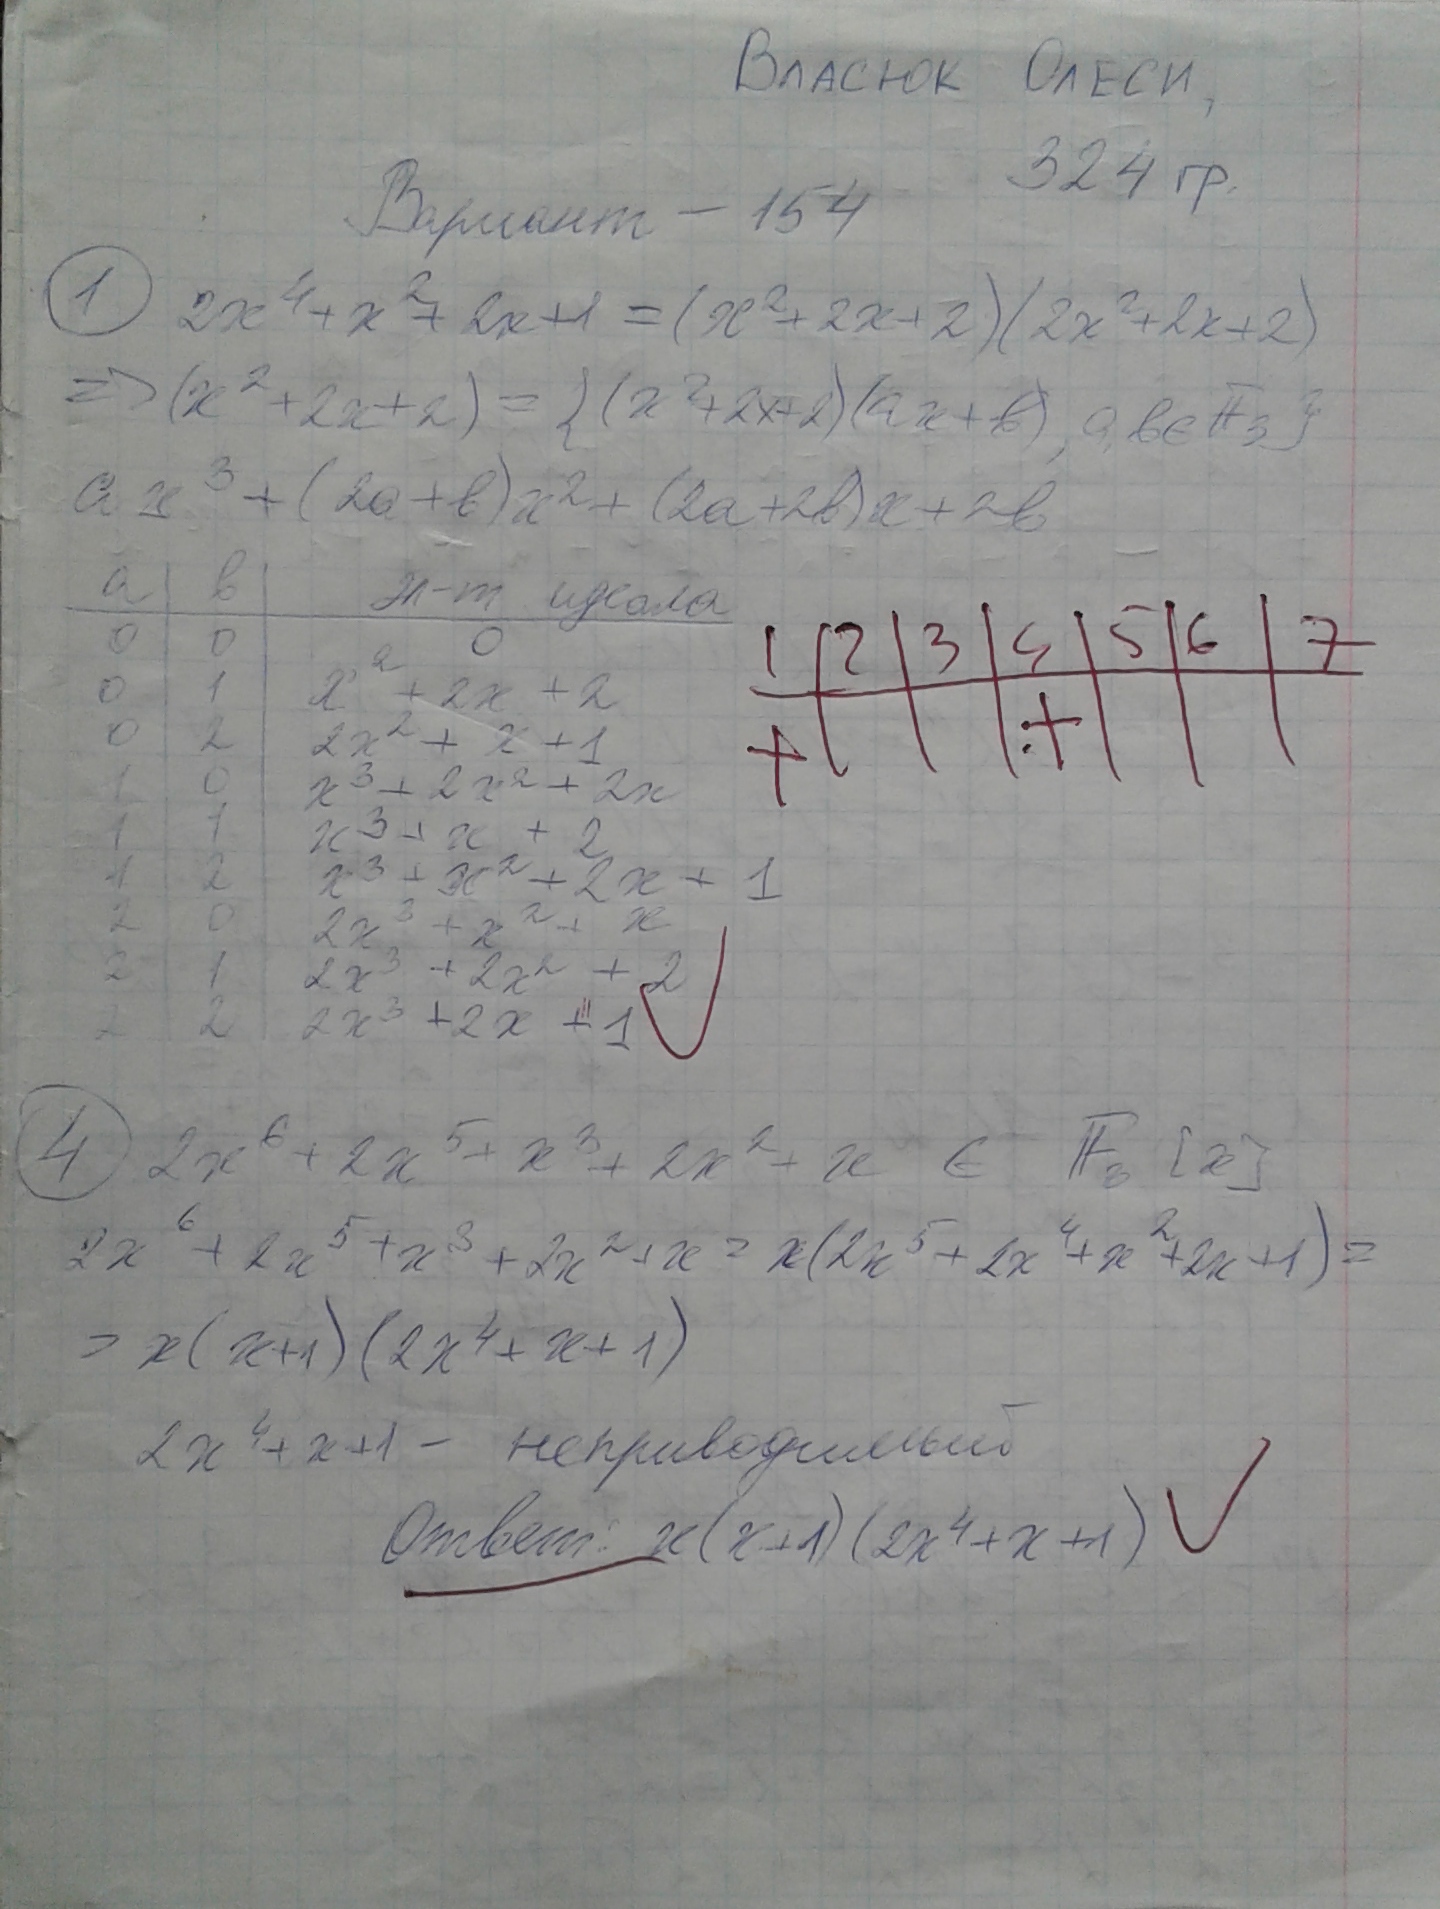 Власюк Олеси,
324 гр.
Вариант – 154
1 2x⁴+x²+2x+1 = (x²+2x+2)(2x²+2x+2)
=> (x²+2x+2) = {(x²+2x+2)(ax+b), a,b∈F₃}
ax³+(2a+b)x²+(2a+2b)x+2b
a | b | эл-т идеала
0 0 0
0 1 x²+2x+2
0 2 2x²+x+1
1 0 x³+2x²+2x
1 1 x³+x+2
1 2 x³+x²+2x+1
2 0 2x³+x²+x
2 1 2x³+2x²+2
2 2 2x³+2x+1
1 | 2 | 3 | 4 | 5 | 6 | 7
+ +
4 2x⁶+2x⁵+x³+2x²+x ∈ F₃[x]
2x⁶+2x⁵+x³+2x²+x = x(2x⁵+2x⁴+x²+2x+1) =
= x(x+1)(2x⁴+x+1)
2x⁴+x+1 – неприводимый
Ответ: x(x+1)(2x⁴+x+1)